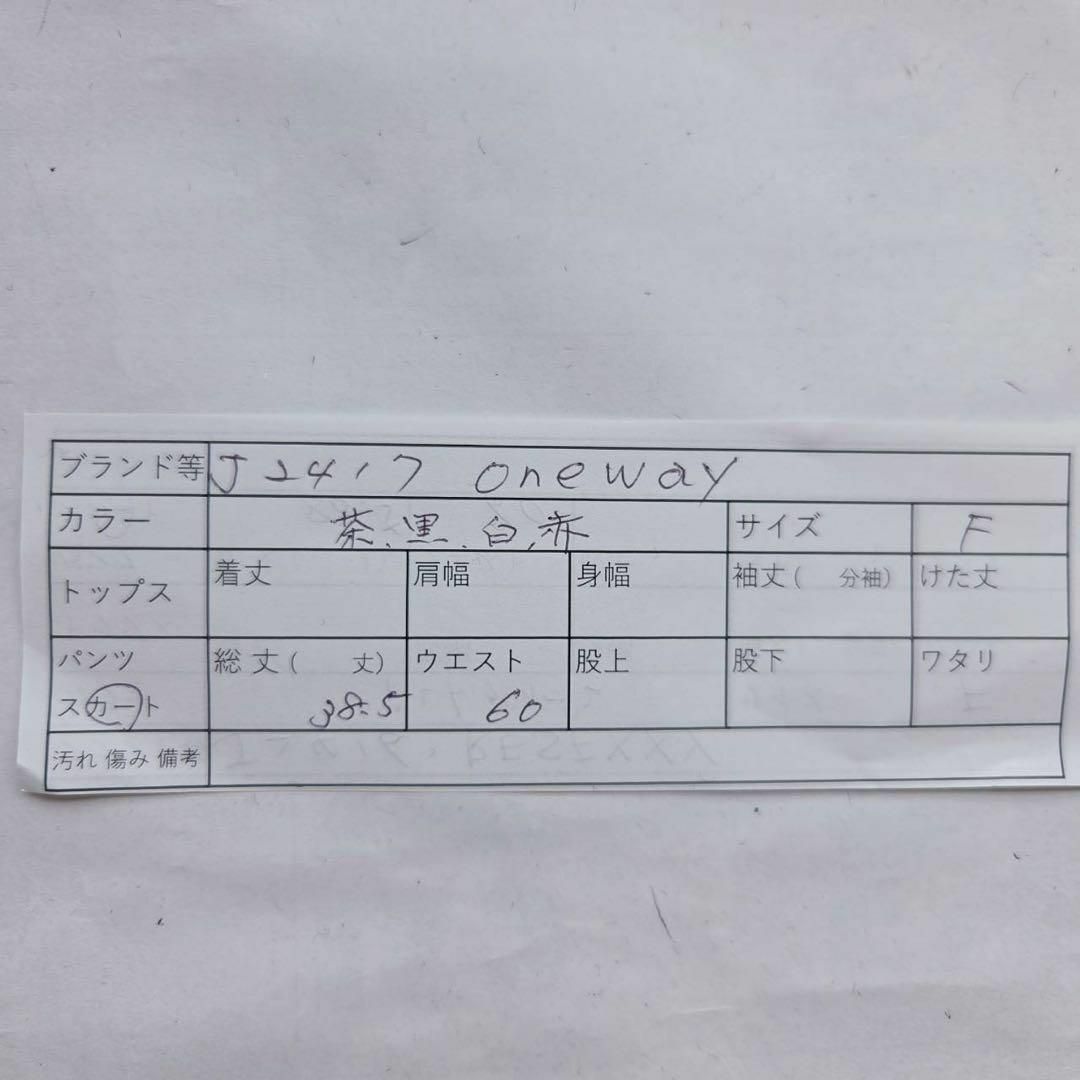 ブランド等 J2417 oneway
カラー 茶、黒、白、赤 サイズ F
トップス 着丈 肩幅 身幅 袖丈( 分袖) けた丈
パンツ 総丈( 丈) ウエスト 股上 股下 ワタリ
スカート 38.5 60
汚れ 傷み 備考